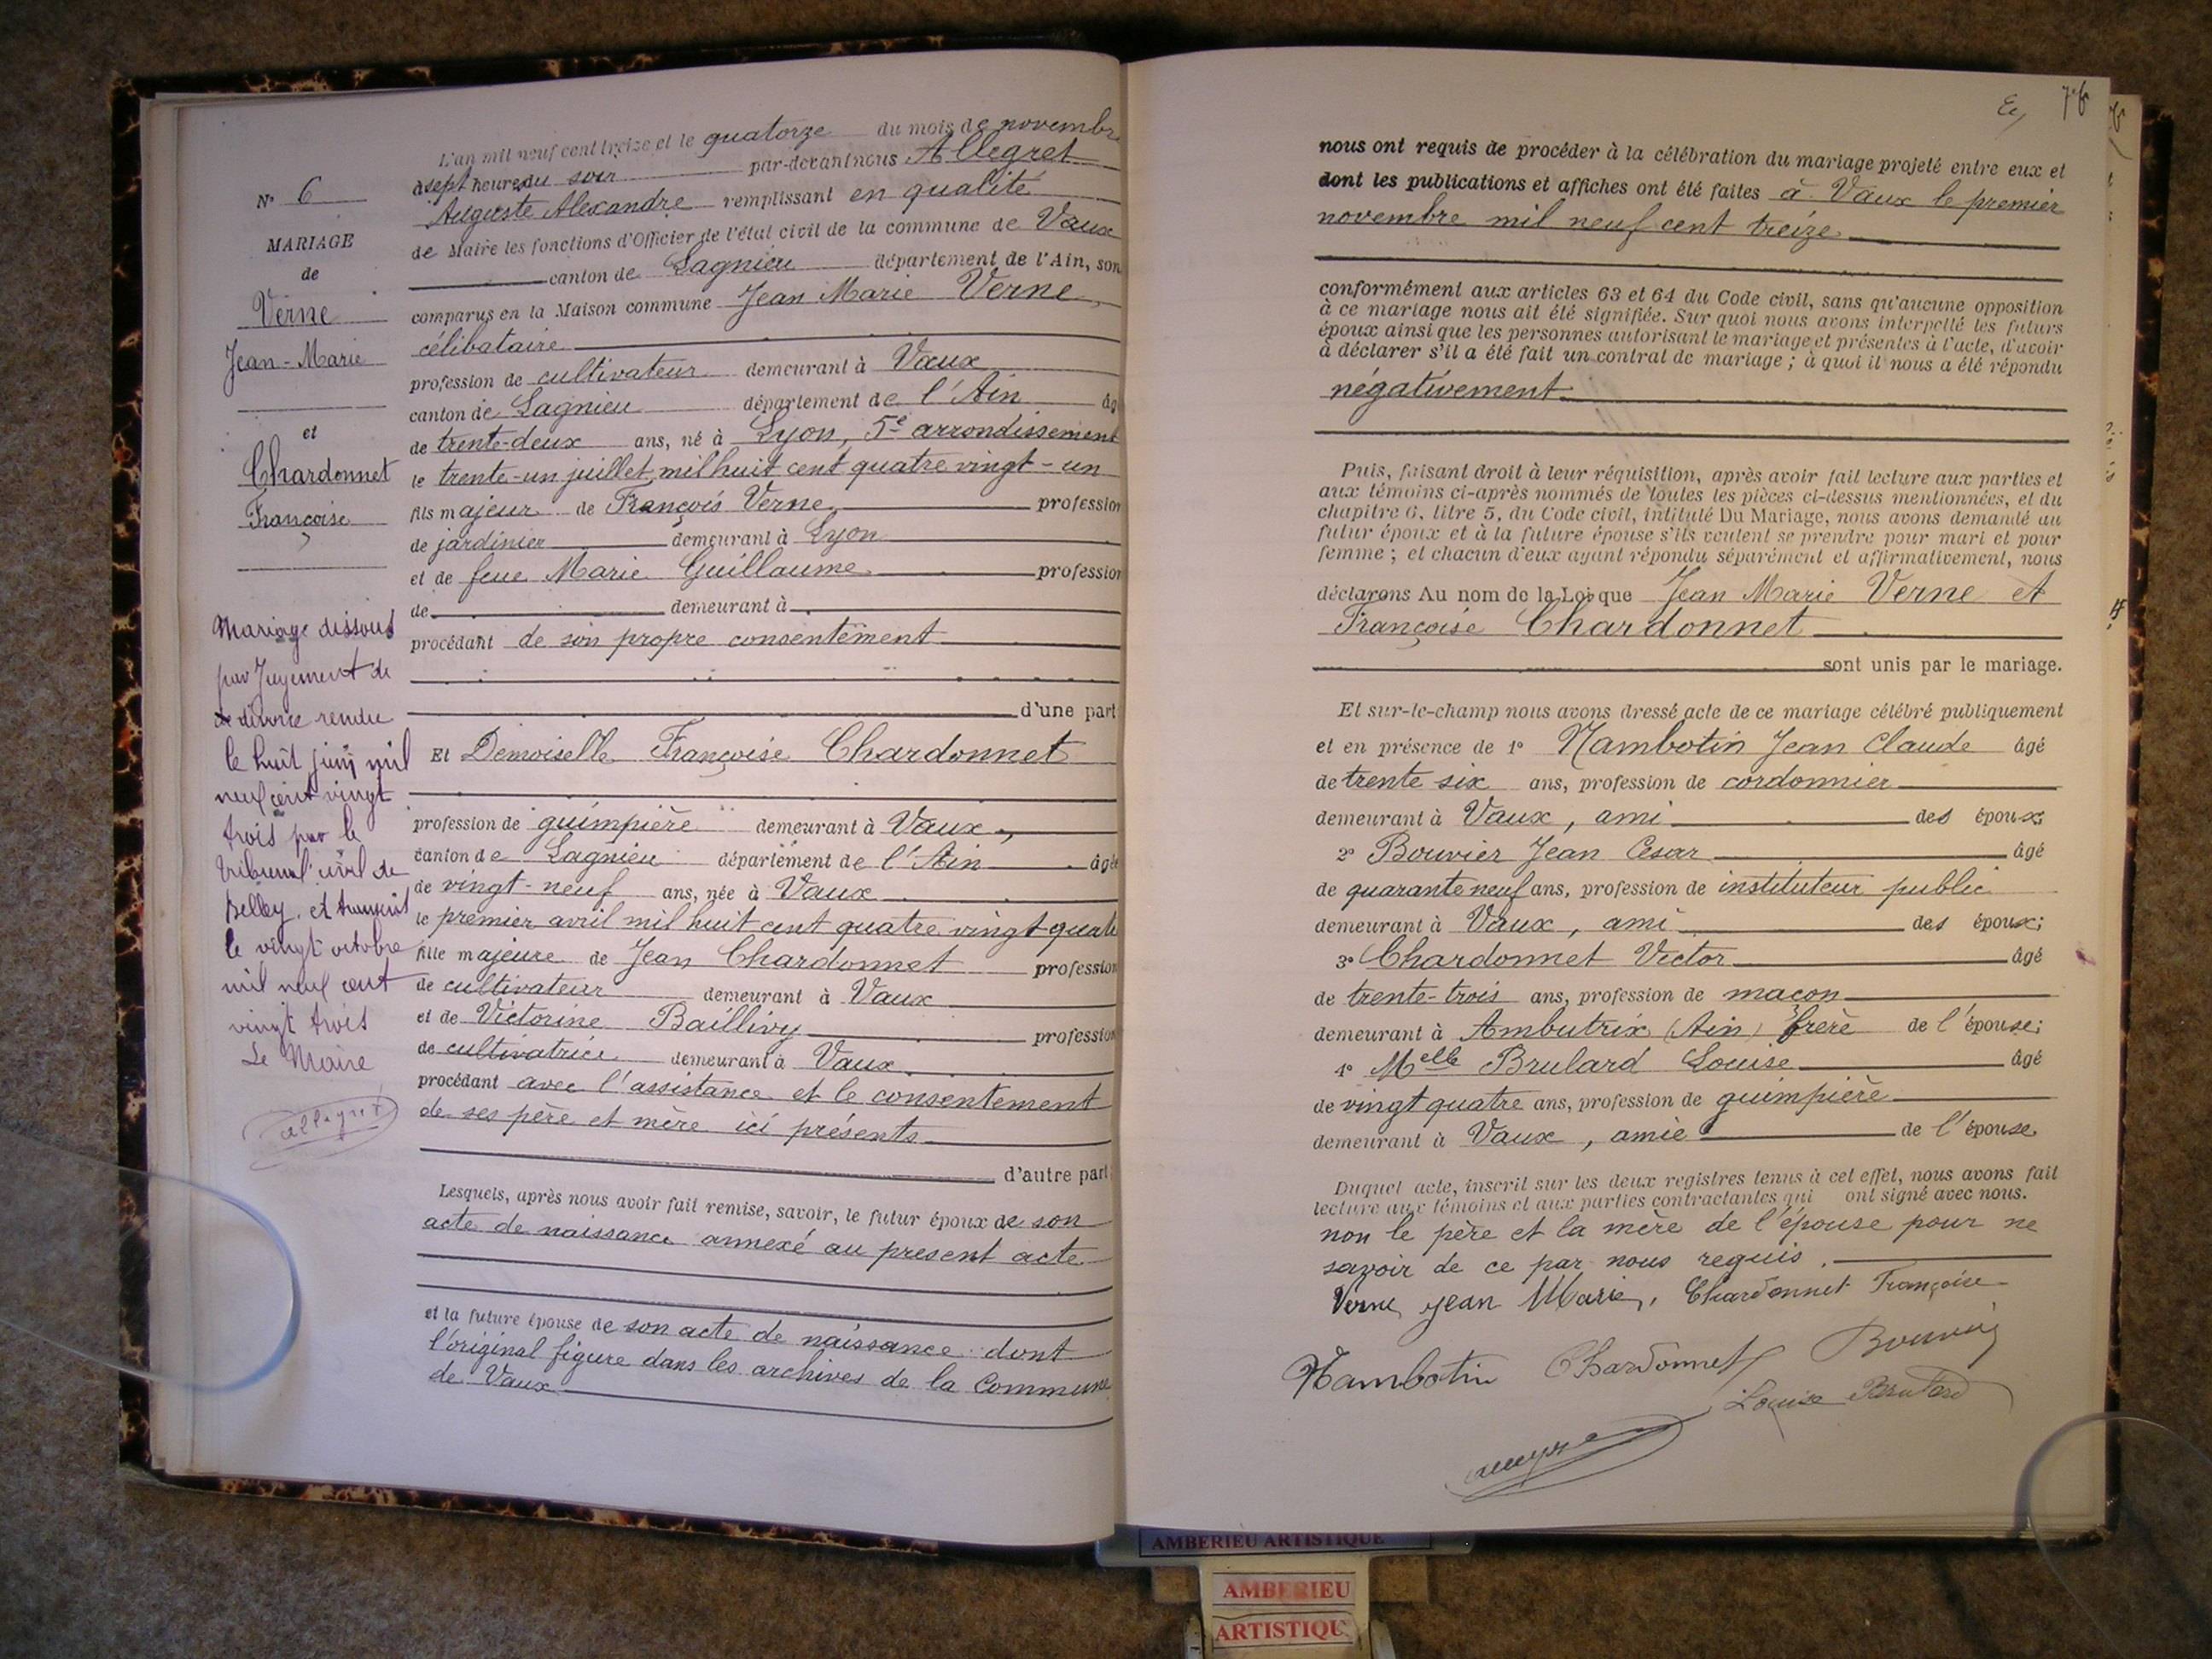 N° 6
MARIAGE
de
Verne
Jean-Marie
et
Chardonnet
Françoise
Mariage dissous
par Jugement de
de divorce rendu
le huit juin mil
neuf cent vingt
trois par le
tribunal civil de
Belley, et transcrit
le vingt octobre
mil neuf cent
vingt trois
Le Maire
Allegret
L'an mil neuf cent treize et le quatorze du mois de novembre
à sept heures du soir par-devant nous Allegret
Auguste Alexandre remplissant en qualité
de Maire les fonctions d'Officier de l'état civil de la commune de Vaux
canton de Lagnieu département de l'Ain, son
comparus en la Maison commune Jean Marie Verne
célibataire
profession de cultivateur demeurant à Vaux
canton de Lagnieu département de l'Ain âg
de trente-deux ans, né à Lyon, 5e arrondissement
le trente-un juillet mil huit cent quatre vingt-un
fils majeur de François Verne profession
de jardinier demeurant à Lyon
et de feue Marie Guillaume profession
de demeurant à
procédant de son propre consentement
d'une part
Et Demoiselle Françoise Chardonnet
profession de guimpière demeurant à Vaux,
canton de Lagnieu département de l'Ain âgée
de vingt-neuf ans, née à Vaux
le premier avril mil huit cent quatre vingt quat
fille majeure de Jean Chardonnet profession
de cultivateur demeurant à Vaux
et de Victorine Baillivy profession
de cultivatrice demeurant à Vaux
procédant avec l'assistance et le consentement
de ses père et mère ici présents
d'autre part;
Lesquels, après nous avoir fait remise, savoir, le futur époux de son
acte de naissance annexé au present acte
et la future épouse de son acte de naissance dont
l'original figure dans les archives de la Commune
de Vaux
76
nous ont requis de procéder à la célébration du mariage projeté entre eux et
dont les publications et affiches ont été faites à Vaux le premier
novembre mil neuf cent treize
conformément aux articles 63 et 64 du Code civil, sans qu'aucune opposition
à ce mariage nous ait été signifiée. Sur quoi nous avons interpellé les futurs
époux ainsi que les personnes autorisant le mariage et présentes à l'acte, d'avoir
à déclarer s'il a été fait un contrat de mariage ; à quoi il nous a été répondu
négativement
Puis, faisant droit à leur réquisition, après avoir fait lecture aux parties et
aux témoins ci-après nommés de toutes les pièces ci-dessus mentionnées, et du
chapitre 6, titre 5, du Code civil, intitulé Du Mariage, nous avons demandé au
futur époux et à la future épouse s'ils veulent se prendre pour mari et pour
femme ; et chacun d'eux ayant répondu séparément et affirmativement, nous
déclarons Au nom de la Loi que Jean Marie Verne et
Françoise Chardonnet
sont unis par le mariage.
Et sur-le-champ nous avons dressé acte de ce mariage célébré publiquement
et en présence de 1° Nambotin Jean Claude âgé
de trente six ans, profession de cordonnier
demeurant à Vaux, ami des époux;
2° Bouvier Jean Cesar âgé
de quarante neuf ans, profession de instituteur public
demeurant à Vaux, ami des époux;
3° Chardonnet Victor âgé
de trente-trois ans, profession de maçon
demeurant à Ambutrix (Ain) frère de l'épouse;
4° Melle Brulard Louise âgé
de vingt quatre ans, profession de guimpière
demeurant à Vaux, amie de l'épouse
Duquel acte, inscrit sur les deux registres tenus à cet effet, nous avons fait
lecture aux témoins et aux parties contractantes qui ont signé avec nous.
non le père et la mère de l'épouse pour ne
savoir de ce par nous requis.
Verne Jean Marie, Chardonnet Françoise
Nambotin Chardonnet Bouvier
Louise Brulard
AMBERIEU ARTISTIQUE
AMBERIEU
ARTISTIQU